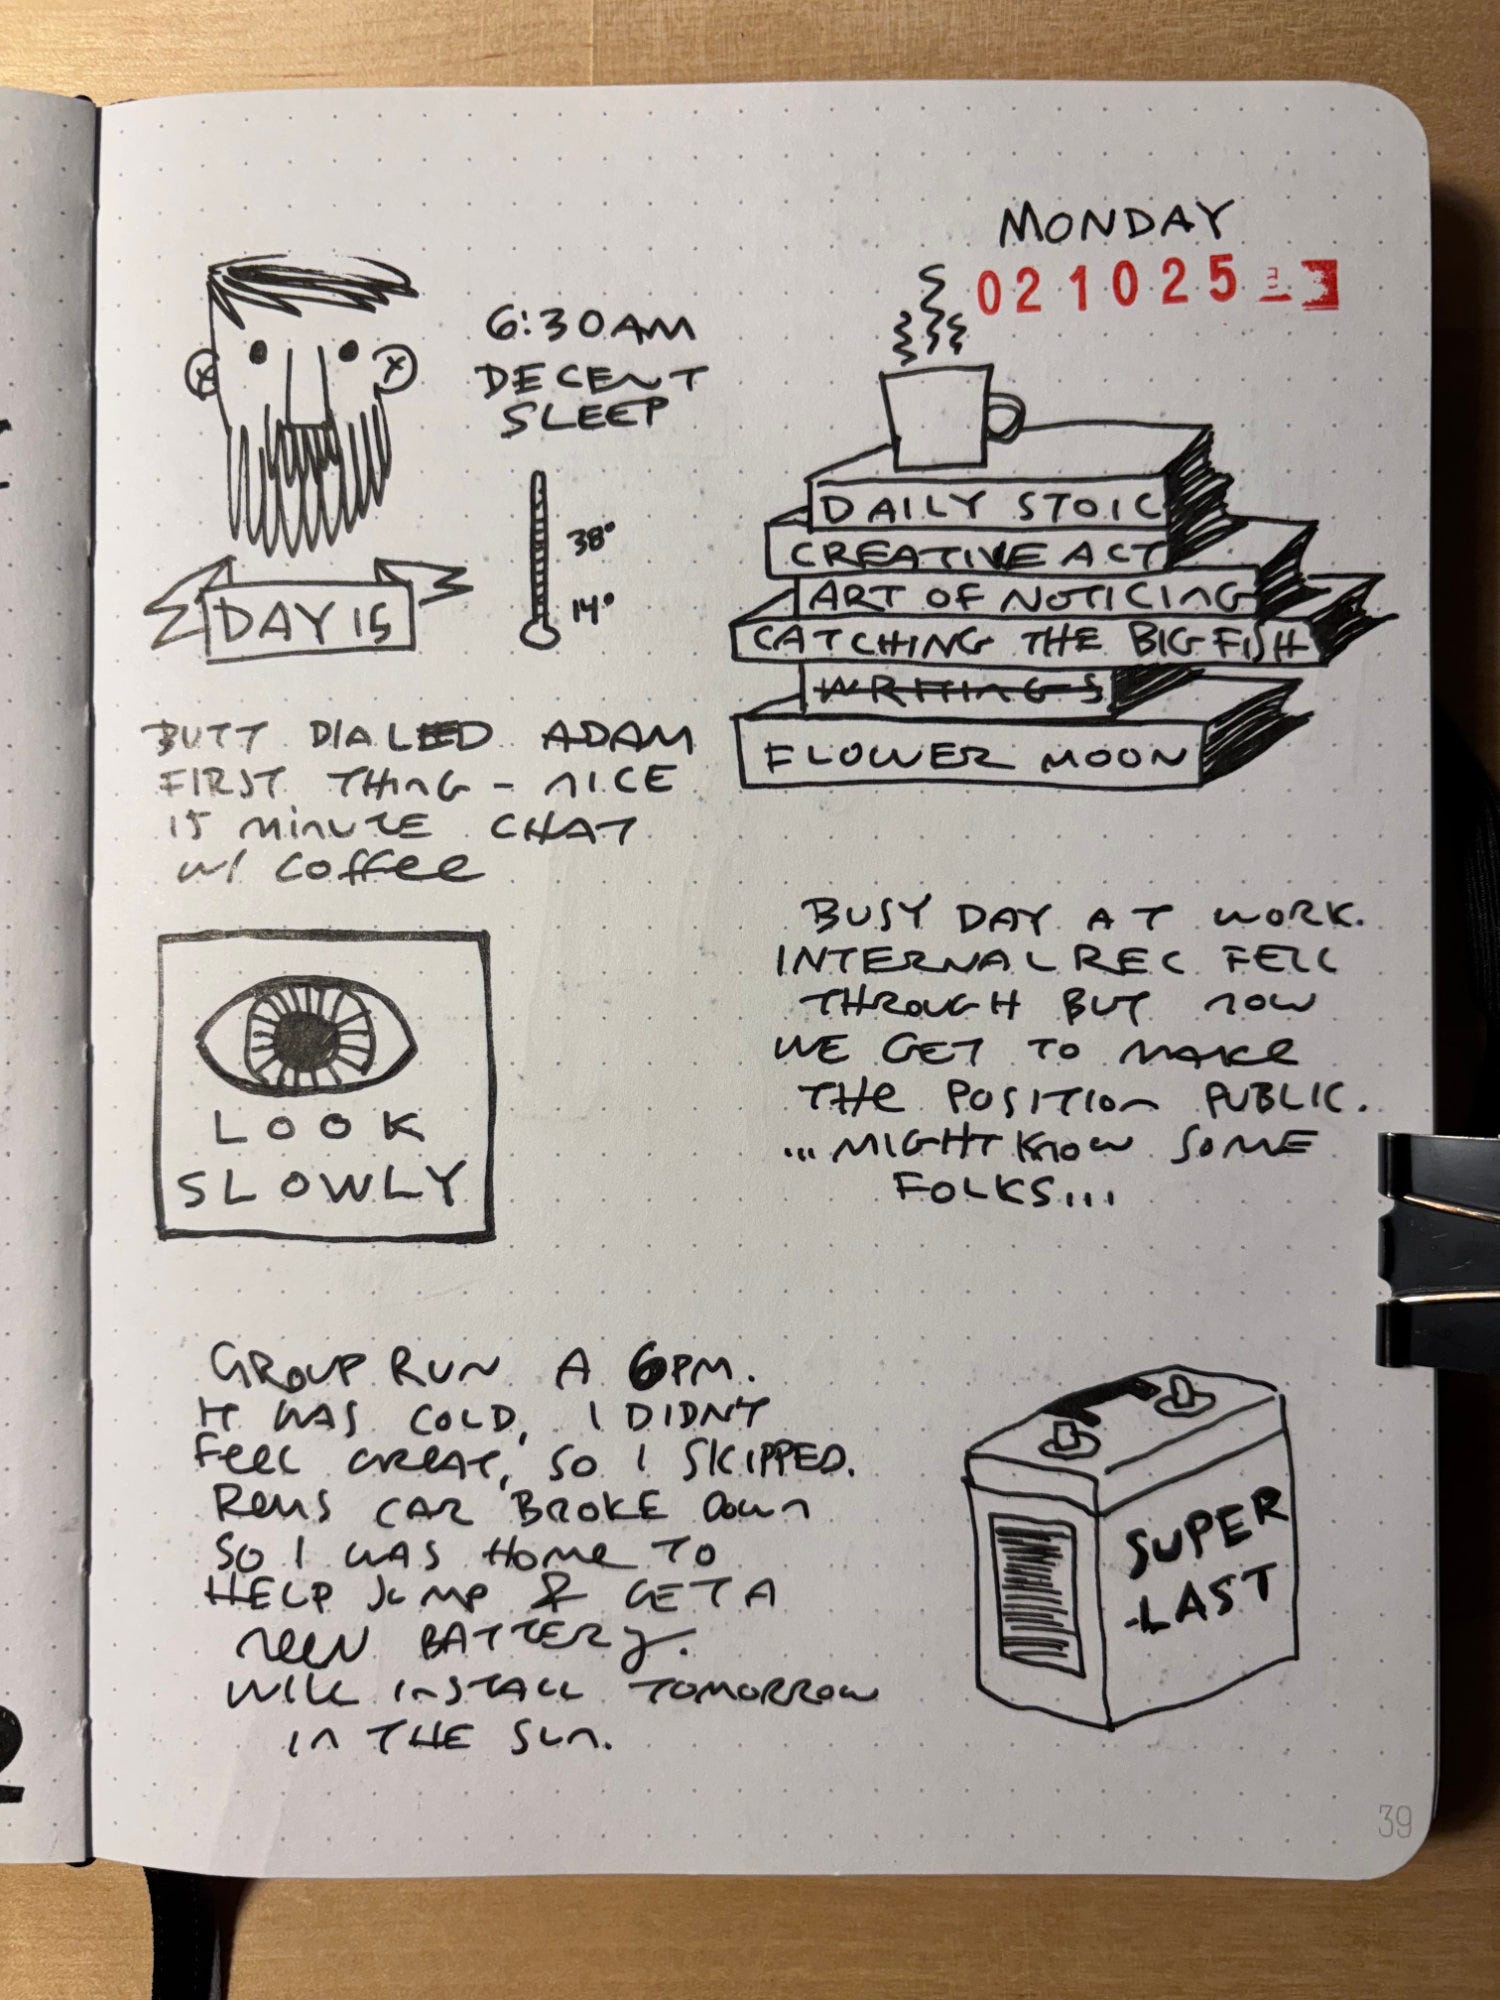 MONDAY
021025
6:30AM
DECENT
SLEEP
38°
14°
DAY 15
DAILY STOIC
CREATIVE ACT
ART OF NOTICING
CATCHING THE BIG FISH
WRITINGS
FLOWER MOON
BUTT DIALED ADAM
FIRST THING - NICE
15 MINUTE CHAT
w/ COFFEE
LOOK
SLOWLY
BUSY DAY AT WORK.
INTERNAL REC FELL
THROUGH BUT NOW
WE GET TO MAKE
THE POSITION PUBLIC.
...MIGHT KNOW SOME
FOLKS...
GROUP RUN A 6PM.
IT WAS COLD, I DIDN'T
FEEL GREAT, SO I SKIPPED.
REMS CAR BROKE DOWN
SO I WAS HOME TO
HELP JUMP & GET A
NEW BATTERY.
WILL INSTALL TOMORROW
IN THE SUN.
SUPER
LAST
39